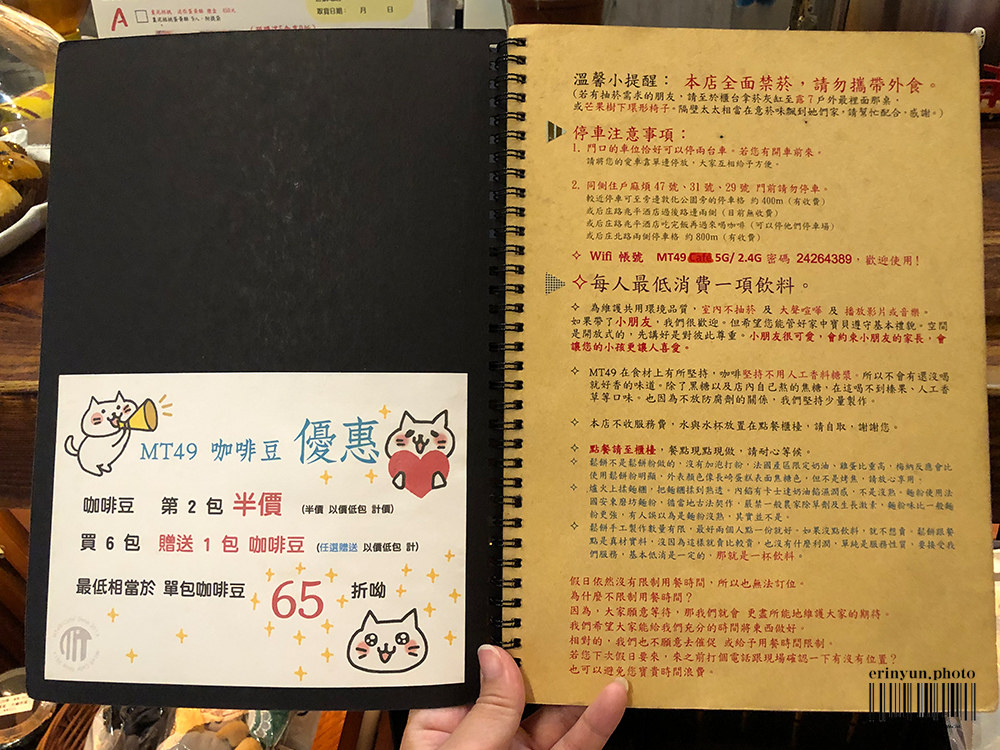 A
取貨日期： 月 日
MT49 咖啡豆 優惠
咖啡豆 第 2 包 半價 (半價 以價低包 計價)
買 6 包 贈送 1 包 咖啡豆 (任選贈送 以價低包 計)
最低相當於 單包咖啡豆 65 折呦
溫馨小提醒： 本店全面禁菸，請勿攜帶外食。
(若有抽菸需求的朋友，請至於櫃台拿菸灰缸至露7戶外最裡面那桌，
或芒果樹下環形椅子。隔壁太太相當在意菸味飄到她們家，請幫忙配合，感謝。)
停車注意事項：
1. 門口的車位恰好可以停兩台車。若您有開車前來。
請將您的愛車靠單邊停放，大家互相給予方便。
2. 同側住戶麻煩 47 號、31 號、29 號 門前請勿停車。
較近停車可至旁邊敦化公園旁的停車格 約 400m（有收費）
或后庄路兆平酒店過後路邊兩側（目前無收費）
或后庄路兆平酒店吃完飯再過來喝咖啡（可以停他們停車場）
或后庄北路兩側停車格 約 800m（有收費）
✧ Wifi 帳號 MT49 Café 5G/ 2.4G 密碼 24264389，歡迎使用！
✧每人最低消費一項飲料。
✧ 為維護共用環境品質，室內不抽菸 及 大聲喧嘩 及 播放影片或音樂。
如果帶了小朋友，我們很歡迎。但希望您能管好家中寶貝遵守基本禮貌。空間
是開放式的，先講好是對彼此尊重。小朋友很可愛，會約束小朋友的家長，會
讓您的小孩更讓人喜愛。
✧ MT49 在食材上有所堅持，咖啡堅持不用人工香料糖漿。所以不會有還沒喝
就好香的味道。除了黑糖以及店內自己熬的焦糖，在這喝不到榛果、人工香
草等口味。也因為不放防腐劑的關係，我們堅持少量製作。
✧ 本店不收服務費，水與水杯放置在點餐櫃檯，請自取，謝謝您。
✧ 點餐請至櫃檯，餐點現點現做，請耐心等候。
✧ 鬆餅不是鬆餅粉做的，沒有加泡打粉，法國產區限定奶油、雞蛋比重高，梅納反應會比
使用鬆餅粉明顯，外表顏色像長崎蛋糕表面焦糖色，但不是烤焦，請放心享用。
✧ 爐火上揉麵糰，把麵糰揉到熟透，內餡有卡士達奶油餡濕潤感，不是沒熟。麵粉使用法
國安東磨坊麵粉，循當地古法製作，嚴禁一般農家除草劑及生長激素，麵粉味比一般麵
粉更強，有人誤以為是麵粉沒熟，其實並不是。
✧ 鬆餅手工製作數量有限，最好兩個人點一份就好。如果沒點飲料，就不想賣，鬆餅跟餐
點是真材實料，沒因為這樣就賣比較貴，也沒有什麼利潤，單純是服務性質，要接受我
們服務，基本低消是一定的，那就是一杯飲料。
假日依然沒有限制用餐時間，所以也無法訂位。
為什麼不限制用餐時間？
因為，大家願意等待，那我們就會 更盡所能地維護大家的期待。
我們希望大家能給我們充分的時間將東西做好。
相對的，我們也不願意去催促 或給予用餐時間限制。
若您下次假日要來，來之前打個電話跟現場確認一下有沒有位置？
也可以避免您寶貴時間浪費。
erinyun.photo